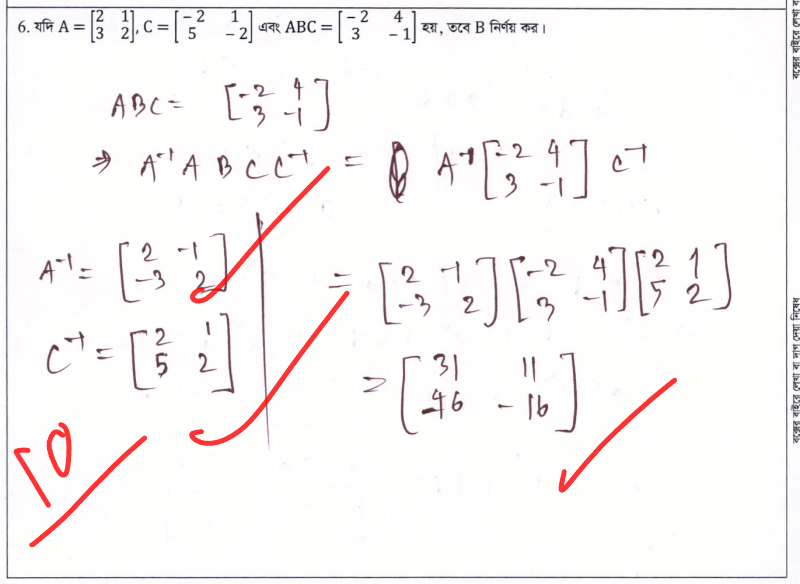 6. যদি A = [2 1 3 2], C = [-2 1 5 -2] এবং ABC = [-2 4 3 -1] হয়, তবে B নির্ণয় কর।
ABC = [-2 4 3 -1]
⇒ A⁻¹ A B C C⁻¹ = A⁻¹ [-2 4 3 -1] C⁻¹
A⁻¹ = [2 -1 -3 2]
C⁻¹ = [2 1 5 2]
= [2 -1 -3 2] [-2 4 3 -1] [2 1 5 2]
= [31 11 -46 -16]
10
বক্সের বাইরে লেখা বা দাগ দেয়া নিষেধ